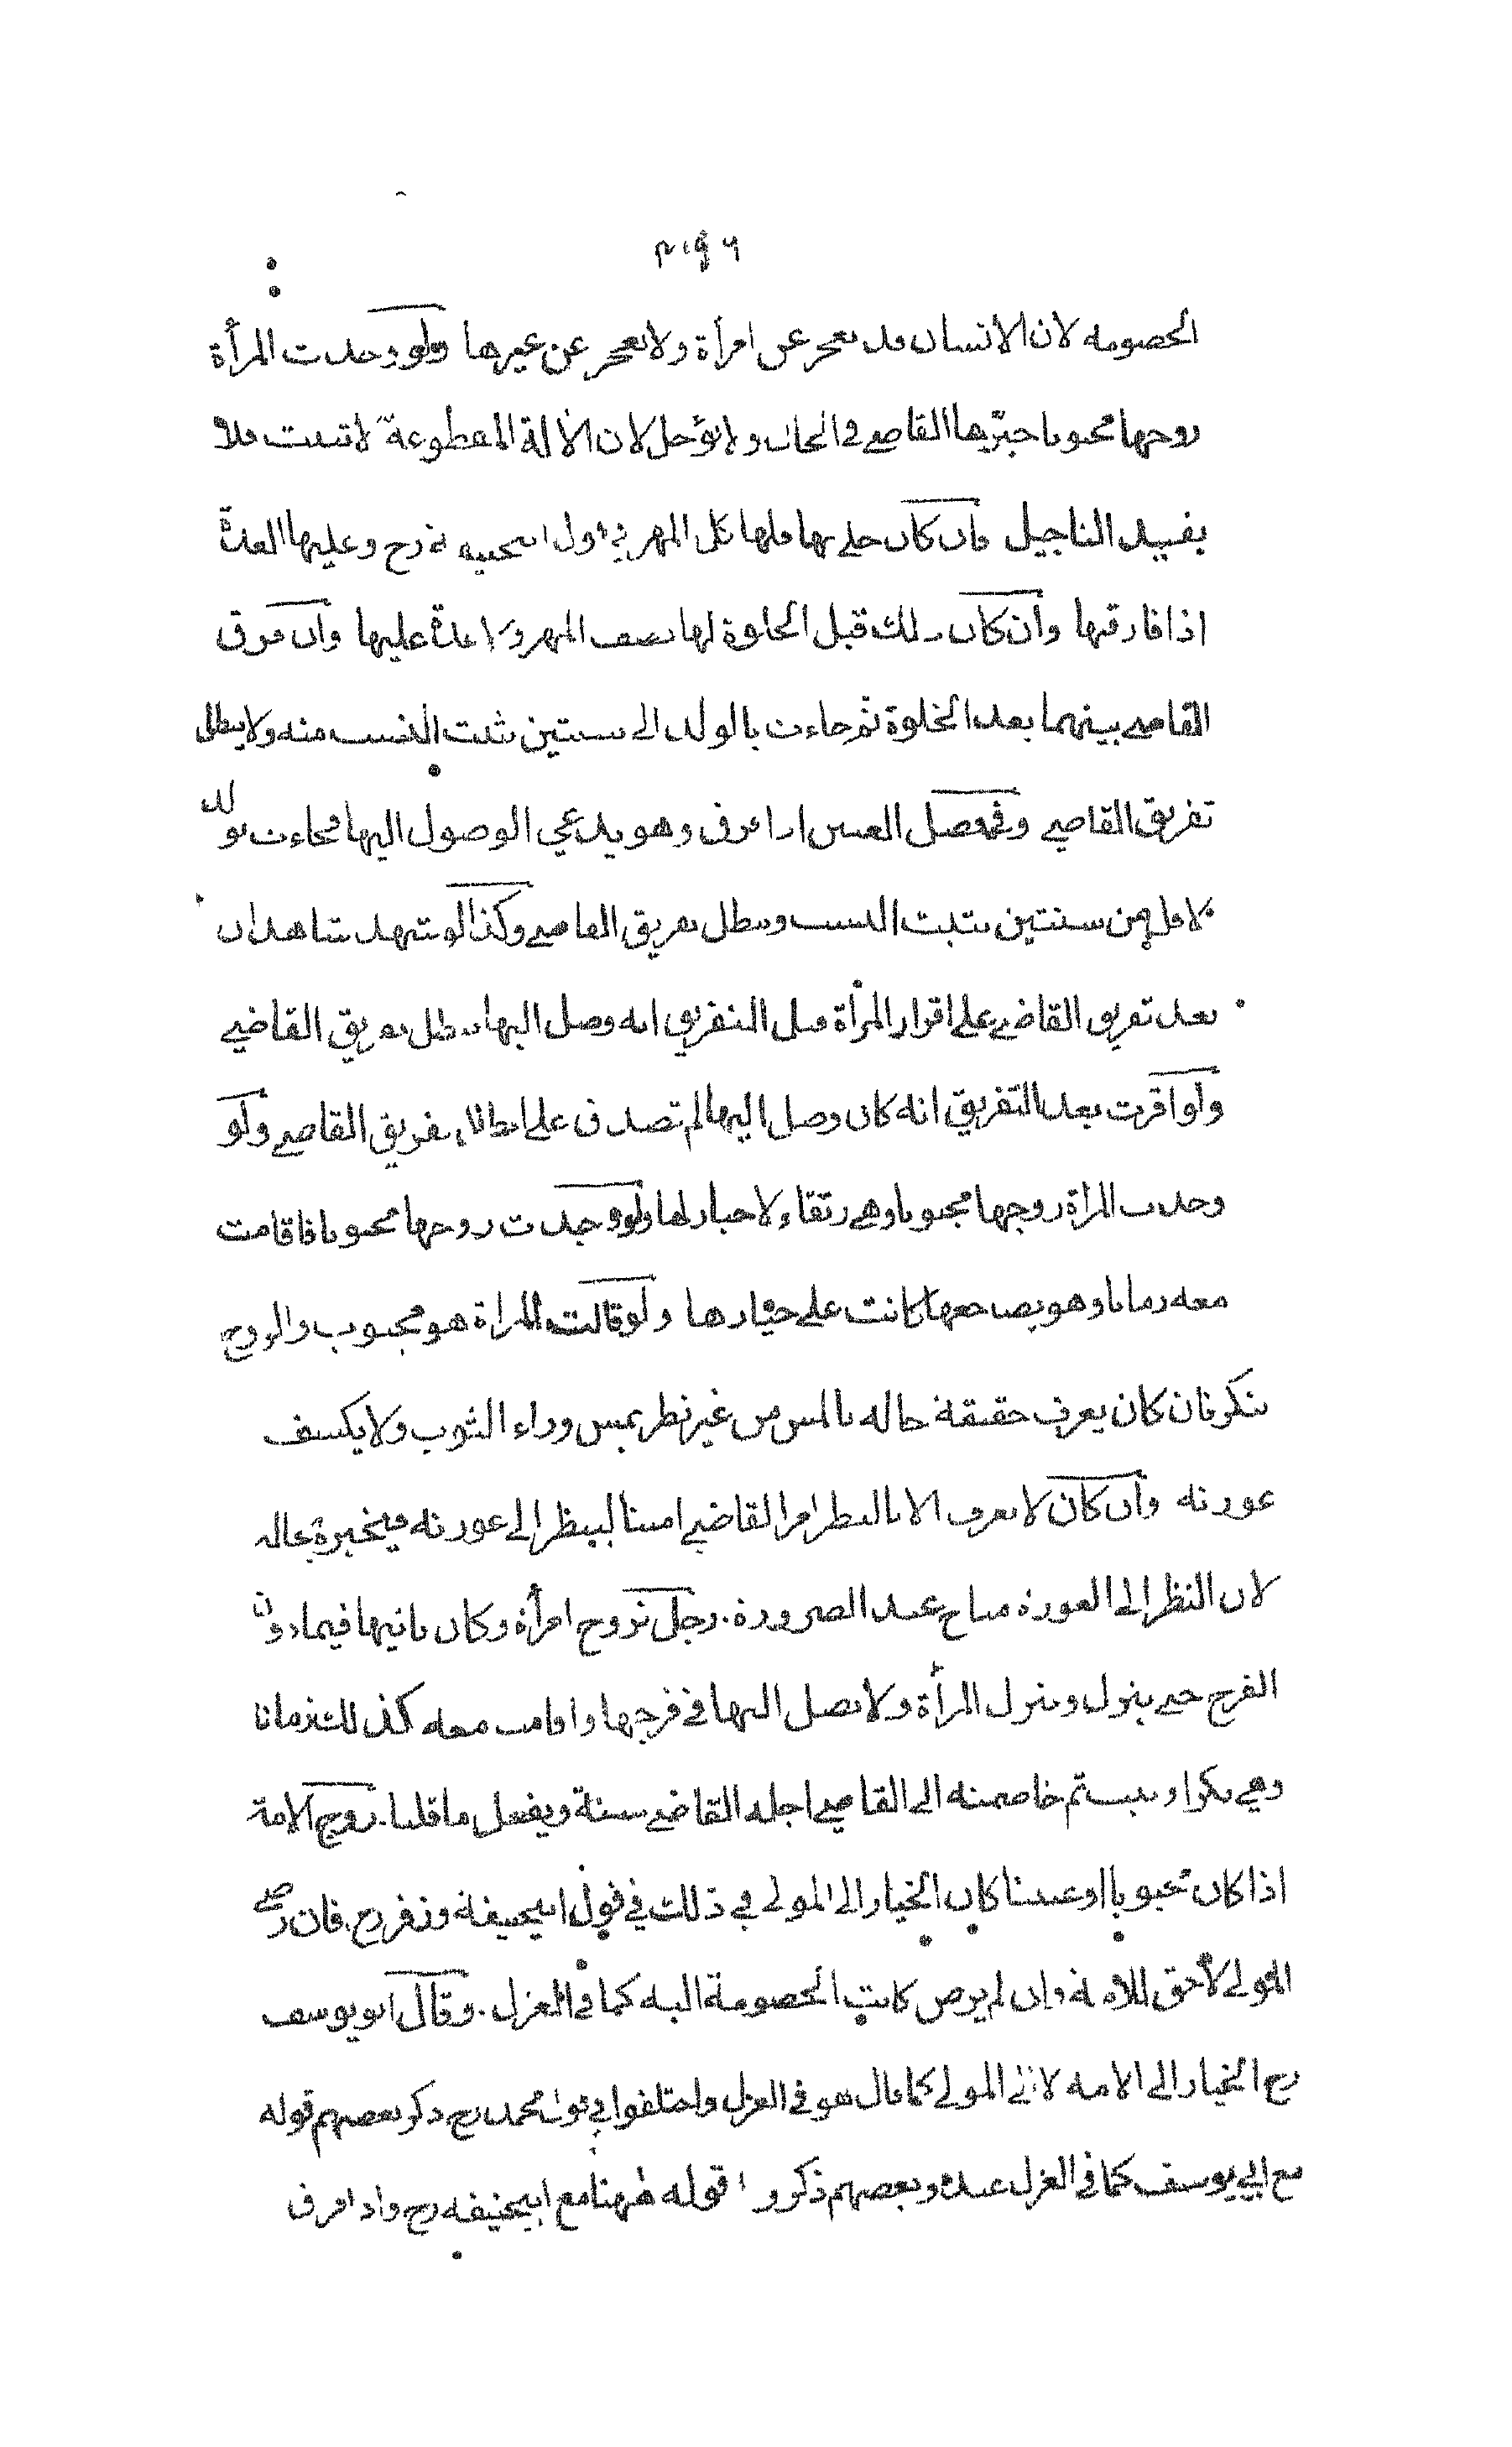 الخصومه لان الانسان قد يعجز عن امرأة ولا يعجز عن غيرها ولو وجدت المرأة
زوجها مجبوبا خيّرها القاضي في الحال ولا يؤجل لان الآلة المقطوعة لا تنبت فلا
يفيد التاجيل فان كان خلي بها فلها كل المهر في قول ابيحنيفه رح وعليها العدة
اذا فارقها وان كان ذلك قبل الخلوة لها نصف المهر ولا عدة عليها وان فرق
القاضي بينهما بعد الخلوة ثم جاءت بالولد الى سنتين يثبت النسب منه ولا يبطل
تفريق القاضي وفي فصل العنين اذا فرق وهو يدعي الوصول اليها فجاءت بولد
لاقل من سنتين يثبت النسب ويبطل تفريق القاضي وكذا لو شهد شاهدان
بعد تفريق القاضي على اقرار المرأة قبل التفريق انه وصل اليها يبطل تفريق القاضي
ولو اقرت بعد التفريق انه كان وصل اليها لم تصدق على ابطال تفريق القاضي ولو
وجدت المراة زوجها مجبوبا وهي رتقاء لا خيار لها ولو وجدت زوجها مجبوبا فاقامت
معه زمانا وهو يضاجعها كانت على خيارها ولو قالت المراة هو مجبوب والزوج
ينكر فان كان يعرف حقيقة حاله بالمس من غير نظر يمس وراء الثوب ولا يكشف
عورته وان كان لا يعرف الا بالنظر امر القاضي امينا لينظر الى عورته فيخبره بحاله
لان النظر الى العورة مباح عند الضرورة. رجل تزوج امرأة وكان ياتيها فيما دون
الفرج حتى ينزل وتنزل المرأة ولا يصل اليها في فرجها واقامت معه كذلك زمانا
وهي بكر او ثيب ثم خاصمته الى القاضي اجله القاضي سنة ويفعل ما قلنا. زوج الامة
اذا كان مجبوبا او عنينا كان الخيار الى المولى في ذلك في قول ابيحنيفة وزفر رح. فان رضي
المولى لا حق للامة وان لم يرض كانت الخصومة اليه كما في العزل. وقال ابو يوسف
رح الخيار الى الامه لا الى المولى كما قال هو في العزل واختلفوا في قول محمد رح ذكر بعضهم قوله
مع ابي يوسف كما في العزل عنده وبعضهم ذكروا قوله ههنا مع ابيحنيفه رح واذا فرق